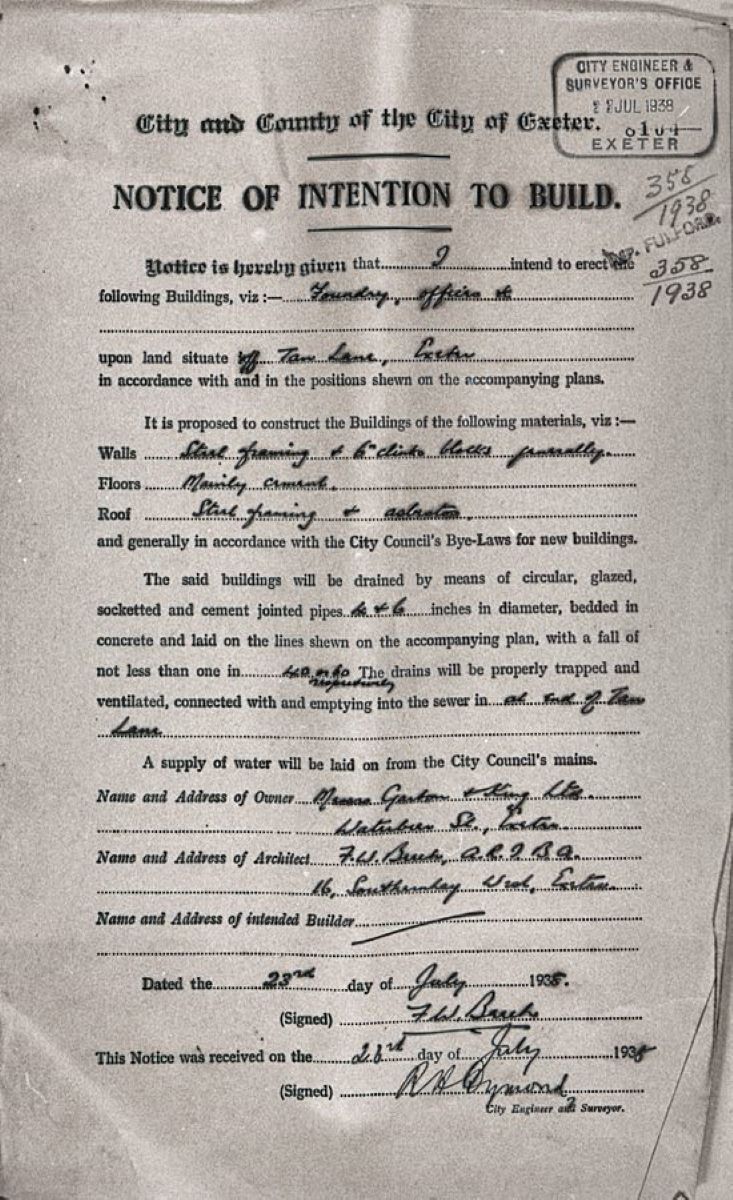 CITY ENGINEER &
SURVEYOR'S OFFICE
JUL 1938
EXETER
City and County of the City of Exeter.
NOTICE OF INTENTION TO BUILD.
358
1938
FULFORD.
358
1938
Notice is hereby given that I intend to erect the
following Buildings, viz :— Foundry, offices &
upon land situate off Tan Lane, Exeter
in accordance with and in the positions shewn on the accompanying plans.
It is proposed to construct the Buildings of the following materials, viz :—
Walls Steel framing & 6" clinker blocks generally.
Floors Mainly cement.
Roof Steel framing & asbestos.
and generally in accordance with the City Council's Bye-Laws for new buildings.
The said buildings will be drained by means of circular, glazed,
socketted and cement jointed pipes 4 & 6 inches in diameter, bedded in
concrete and laid on the lines shewn on the accompanying plan, with a fall of
not less than one in 40 or 60 The drains will be properly trapped and
respectively
ventilated, connected with and emptying into the sewer in at end of Tan
Lane
A supply of water will be laid on from the City Council's mains.
Name and Address of Owner Messrs Garton & King Ltd.
Waterbeer St., Exeter.
Name and Address of Architect F.W. Beech, A.R.I.B.A.
16, Southernhay West, Exeter.
Name and Address of intended Builder
Dated the 23rd day of July 1938.
(Signed) F.W. Beech
This Notice was received on the 23rd day of July 1938
(Signed) R H Dymond
City Engineer and Surveyor.